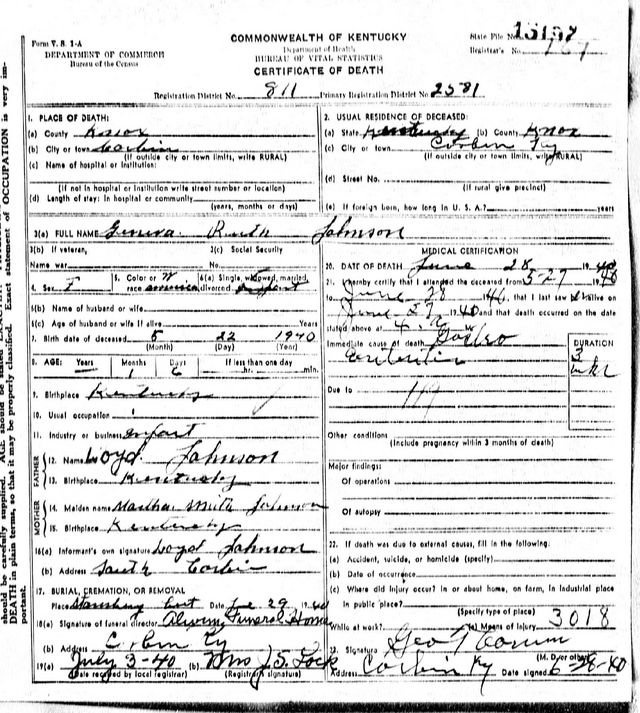 Form V. S. 1-A
DEPARTMENT OF COMMERCE
Bureau of the Census
COMMONWEALTH OF KENTUCKY
Department of Health
BUREAU OF VITAL STATISTICS
CERTIFICATE OF DEATH
State File No. 15157
Registrar's No. 167
Registration District No. 811 Primary Registration District No. 2581
should be carefully supplied. AGE should be stated Exact statement of OCCUPATION is very im-
DEATH in plain terms, so that it may be properly classified.
portant.
1. PLACE OF DEATH:
(a) County Knox
(b) City or town Corbin
(If outside city or town limits, write RURAL)
(c) Name of hospital or institution:
(If not in hospital or institution write street number or location)
(d) Length of stay: In hospital or community
(years, months or days)
2. USUAL RESIDENCE OF DECEASED:
(a) State Kentucky (b) County Knox
(c) City or town Corbin Ky
(If outside city or town limits, write RURAL)
(d) Street No.
(If rural give precinct)
(e) If foreign born, how long in U. S. A.? years
3(a) FULL NAME Geneva Ruth Johnson
3(b) If veteran, 3(c) Social Security
Name war No.
4. Sex F 5. Color or race W america 6(a) Single, widowed, married, divorced infant
6(b) Name of husband or wife
6(c) Age of husband or wife if alive Years
7. Birth date of deceased 5 22 1940
(Month) (Day) (Year)
8. AGE: Years Months Days If less than one day
— 1 6 hr. min.
9. Birthplace Kentucky
10. Usual occupation
11. Industry or business infant
FATHER
12. Name Loyd Johnson
13. Birthplace Kentucky
MOTHER
14. Maiden name Martha Smith Johnson
15. Birthplace Kentucky
16(a) Informant's own signature Loyd Johnson
(b) Address South Corbin
17. BURIAL, CREMATION, OR REMOVAL
Place Date June 29 1940
18(a) Signature of funeral director Funeral Home
(b) Address Corbin Ky
19(a) July 3-40 (b) Mrs J. S. Lock
(Date received by local registrar) (Registrar's signature)
MEDICAL CERTIFICATION
20. DATE OF DEATH June 28 1940
21. I hereby certify that I attended the deceased from 5-27 1940
to June 28 1940, that I last saw alive on
June 27 1940 and that death occurred on the date
stated above at
Immediate cause of death Gastro
Enteritis
DURATION
3
wks
Due to 119
Other conditions
(Include pregnancy within 3 months of death)
Major findings:
Of operations
Of autopsy
22. If death was due to external causes, fill in the following:
(a) Accident, suicide, or homicide (specify)
(b) Date of occurrence
(c) Where did injury occur? In or about home, on farm, in industrial place
in public place?
(Specify type of place)
While at work? (e) Means of Injury 3018
23. Signature Geo T Corum
(M. D. or other)
Address Corbin Ky Date signed 6-28-40